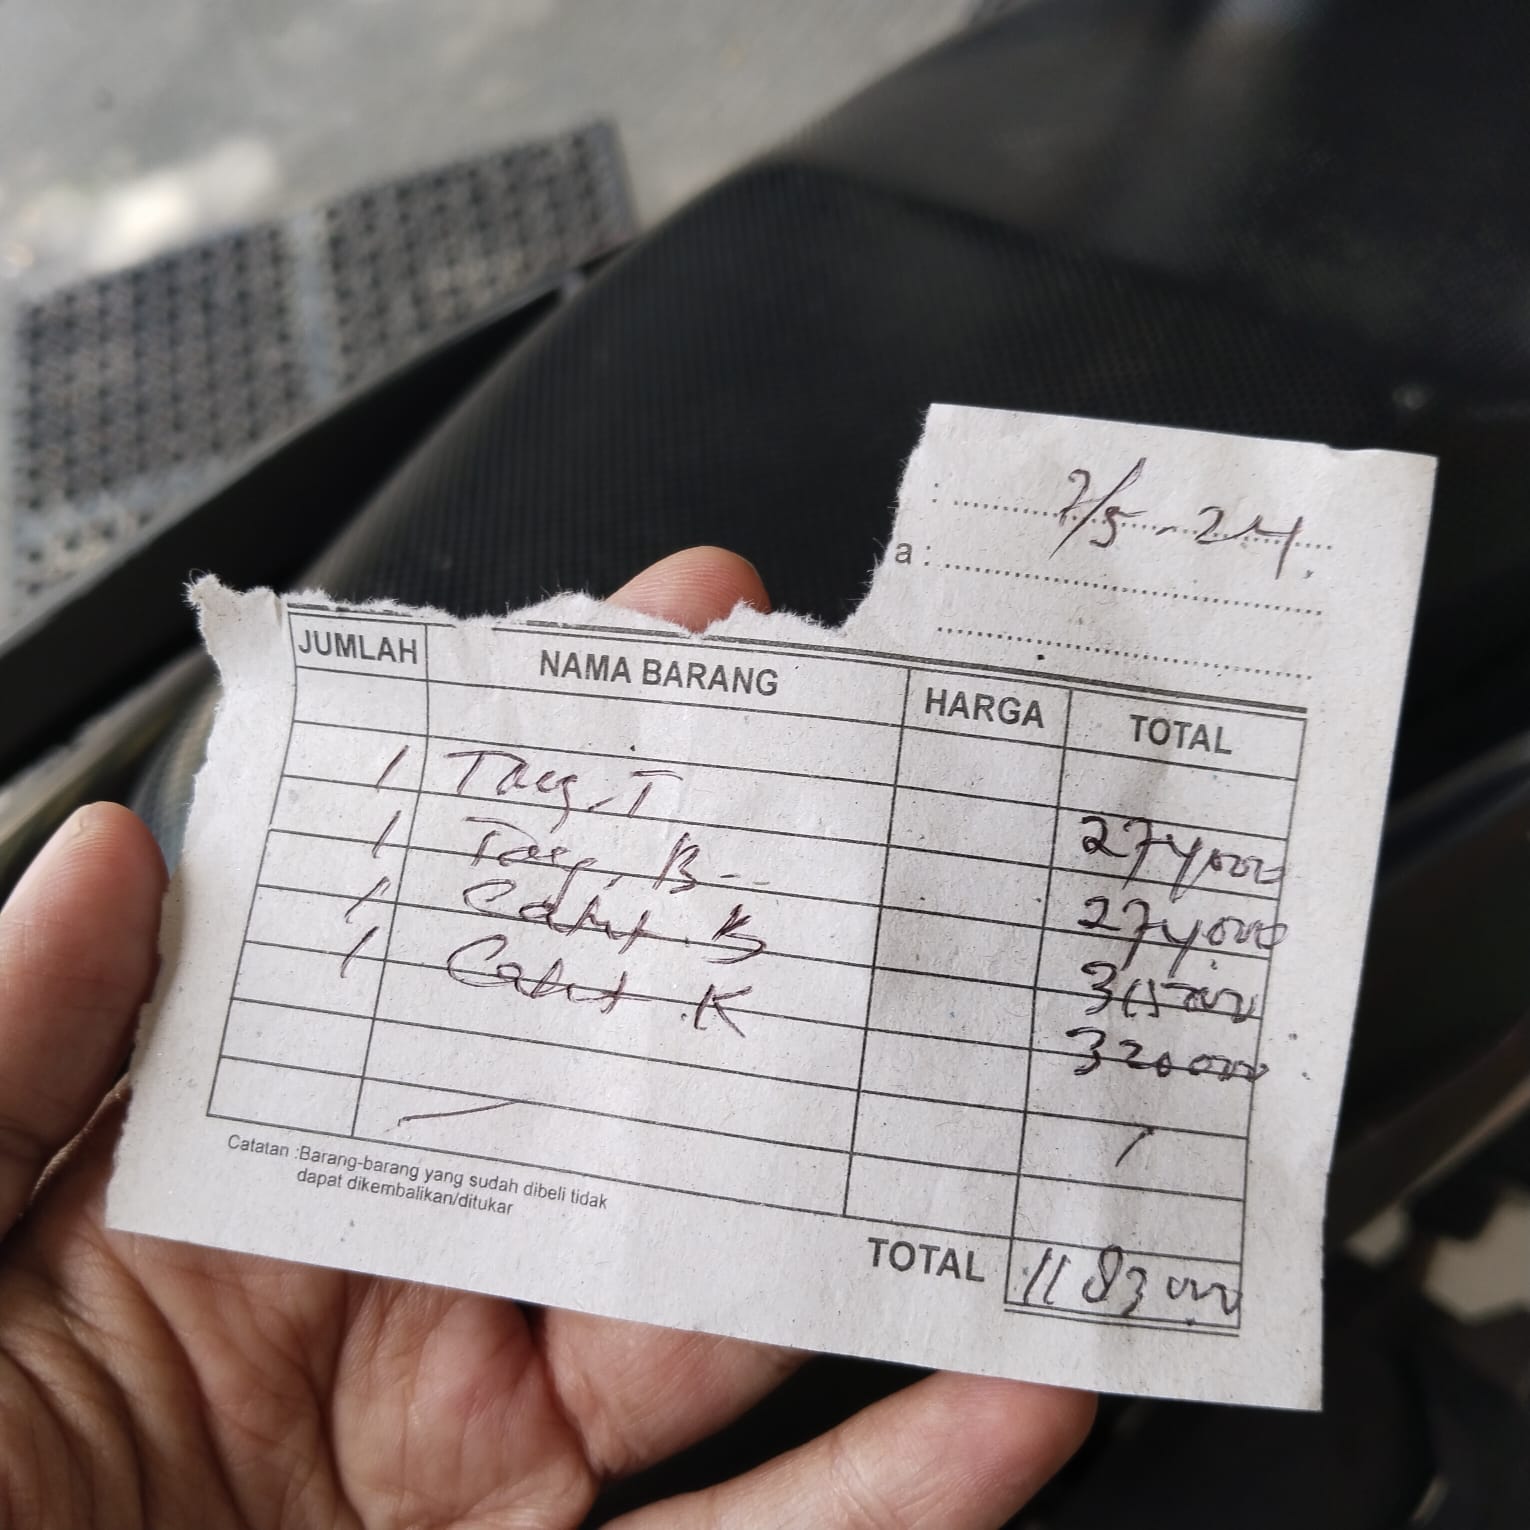 : 7/5-24.
a :
JUMLAH NAMA BARANG HARGA TOTAL
1 T 274,000
1 B 274,000
1 B 315000
1 K 320000
Catatan :Barang-barang yang sudah dibeli tidak
dapat dikembalikan/ditukar
TOTAL 1183000